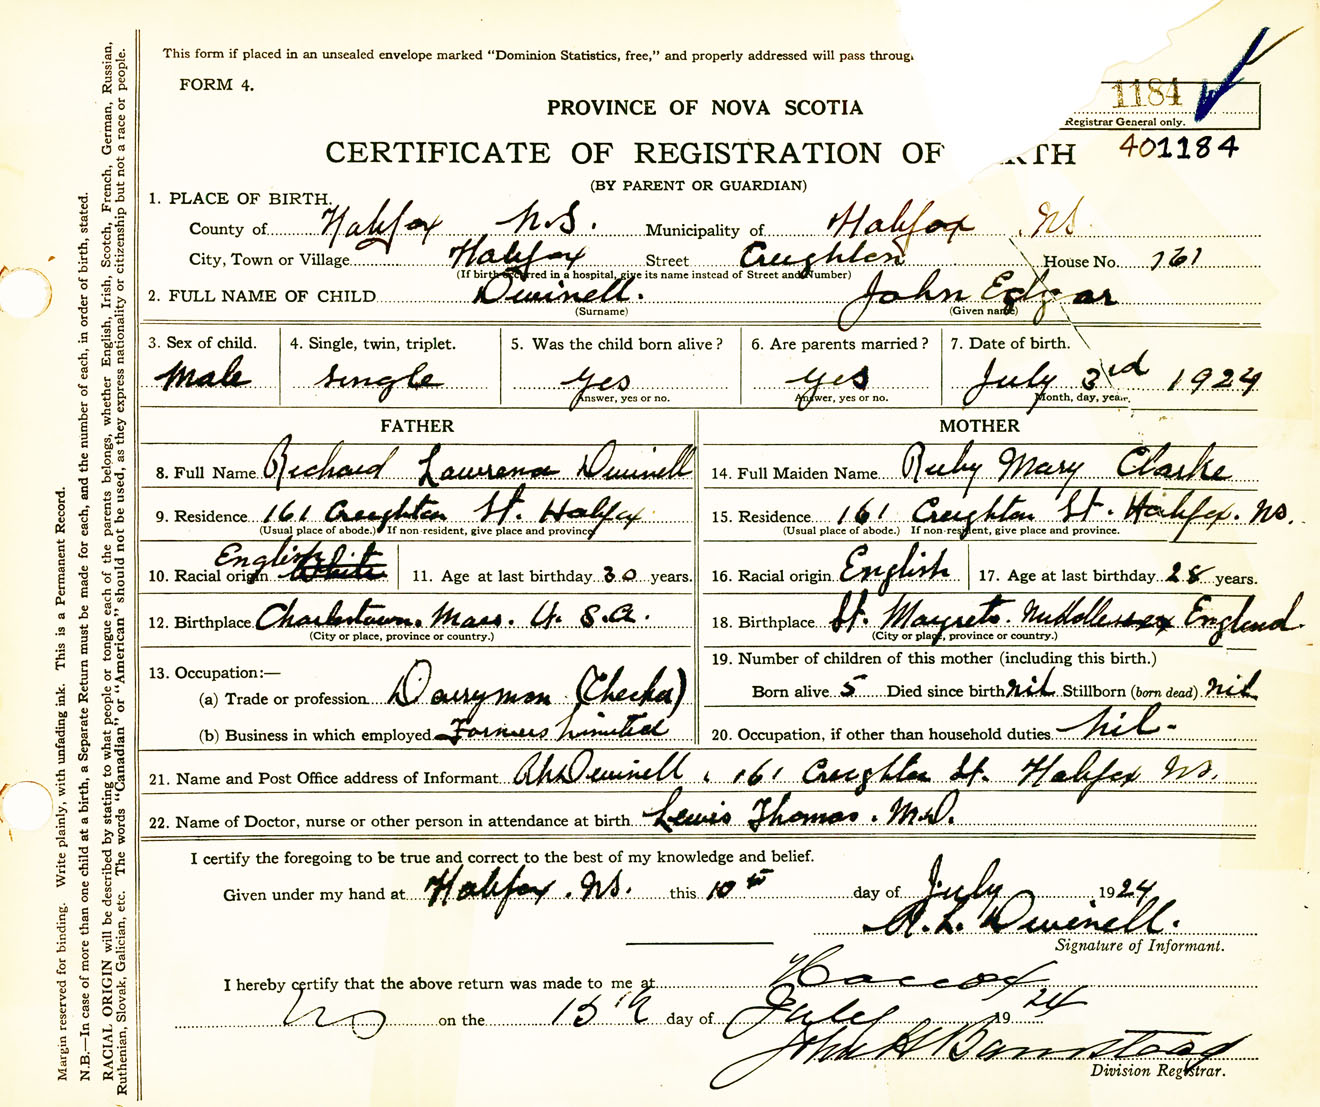 This form if placed in an unsealed envelope marked "Dominion Statistics, free," and properly addressed will pass through
FORM 4.
1184
Registrar General only.
401184
PROVINCE OF NOVA SCOTIA
CERTIFICATE OF REGISTRATION OF BIRTH
(BY PARENT OR GUARDIAN)
1. PLACE OF BIRTH.
County of Halifax N.S. Municipality of Halifax NS
City, Town or Village Halifax Street Creighton House No. 161
(If birth occurred in a hospital, give its name instead of Street and Number)
2. FULL NAME OF CHILD Dwinell. John Edgar
(Surname) (Given name)
3. Sex of child. 4. Single, twin, triplet. 5. Was the child born alive? 6. Are parents married? 7. Date of birth.
Male single yes yes July 3rd 1924
Answer, yes or no. Answer, yes or no. Month, day, year.
FATHER MOTHER
8. Full Name Richard Lawrence Dwinell 14. Full Maiden Name Ruby Mary Clarke
9. Residence 161 Creighton St. Halifax 15. Residence 161 Creighton St. Halifax. NS.
(Usual place of abode.) If non-resident, give place and province (Usual place of abode.) If non-resident, give place and province.
10. Racial origin English White 11. Age at last birthday 30 years. 16. Racial origin English 17. Age at last birthday 28 years.
12. Birthplace Charlestown. Mass. U.S.A. 18. Birthplace St. Margrets. Middlessex England.
(City or place, province or country.) (City or place, province or country.)
13. Occupation:— 19. Number of children of this mother (including this birth.)
(a) Trade or profession Dairyman (Checker) Born alive 5 Died since birth nil Stillborn (born dead) nil
(b) Business in which employed Farmers Limited 20. Occupation, if other than household duties nil-
21. Name and Post Office address of Informant Dwinell, 161 Creighton St. Halifax NS.
22. Name of Doctor, nurse or other person in attendance at birth Lewis Thomas. M.D.
I certify the foregoing to be true and correct to the best of my knowledge and belief.
Given under my hand at Halifax. NS. this 10th day of July 1924
R. L. Dwinell.
Signature of Informant.
I hereby certify that the above return was made to me at
NS on the 15th day of July 1924
John H Barnstead
Division Registrar.
Margin reserved for binding. Write plainly, with unfading ink. This is a Permanent Record.
N.B.—In case of more than one child at a birth, a Separate Return must be made for each, and the number of each, in order of birth, stated.
RACIAL ORIGIN will be described by stating to what people or tongue each of the parents belongs, whether English, Irish, Scotch, French, German, Russian,
Ruthenian, Slovak, Galician, etc. The words "Canadian" or "American" should not be used, as they express nationality or citizenship but not a race or people.